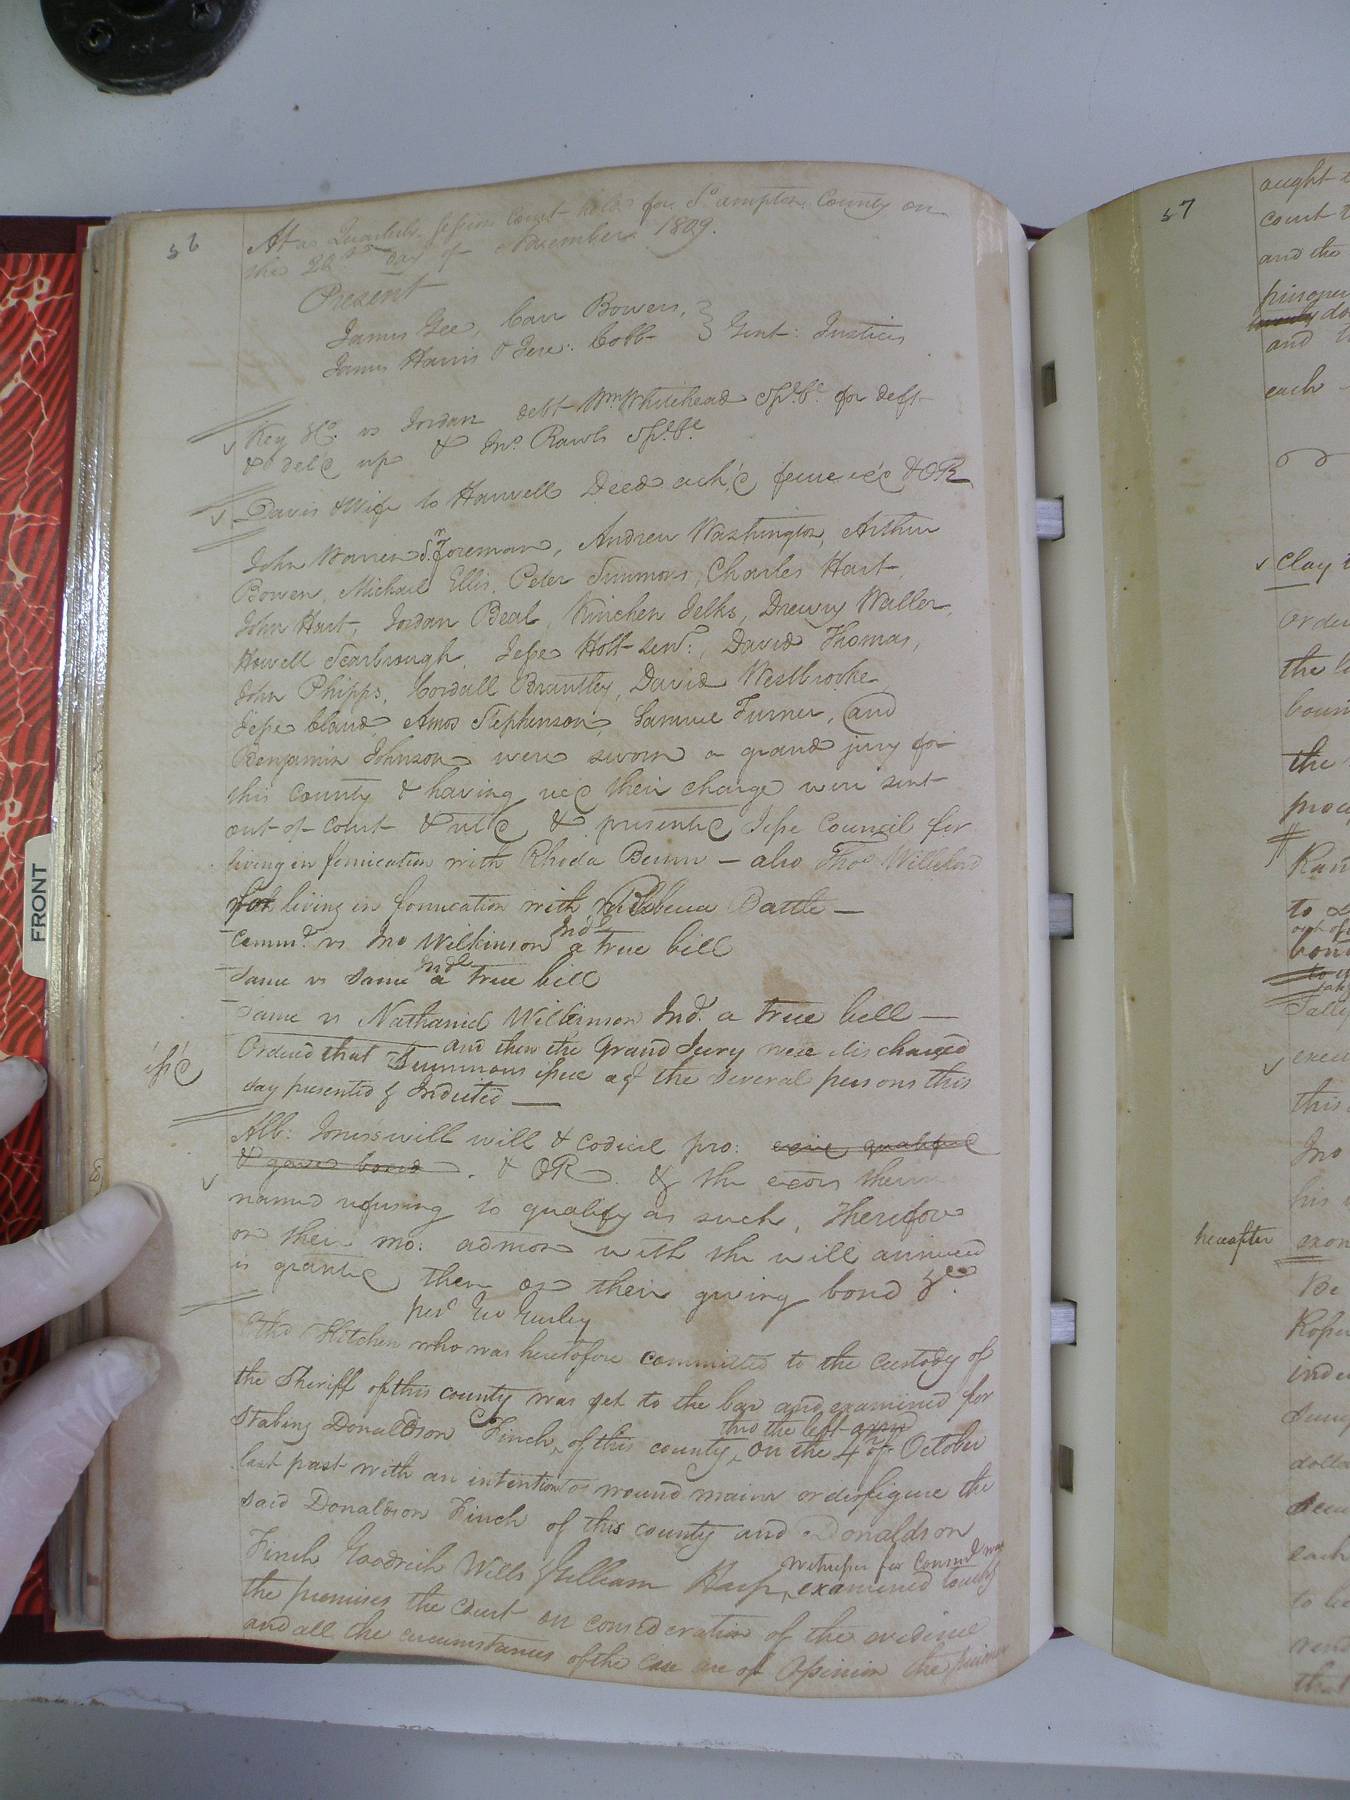 56
At a Quarterly Session Court held for S.ampton County on
the 20th day of November 1809.
Present
James Gee, Carr Bowers,
James Harris & Jere: Cobb } Gent: Justices
Key &c. vs Jordan debt Wm Whitehead Spl. bl. for deft
& del'd up & Jno. Rawls Spl. bl.
Davis & Wife to Harwell Deed ack'd feme &OR
John Warren Sr. Foreman, Andrew Washington, Arthur
Bowen, Michael Ellis, Peter Simmons, Charles Hart,
John Hart, Jordan Beal, Kinchen Jelks, Drewry Waller,
Howell Scarbrough, Jesse Holt senr., David Thomas,
John Phipps, Cordall Brantley, David Westbrooke
Jesse Bland, Amos Stephenson, Samuel Turner, and
Benjamin Johnson were sworn a grand jury for
this County & having rec'd their charge were sent
out of Court & ret'd & presented Jesse Council for
living in fornication with Rhoda Bunn — also Thos Williford
for living in fornication with Rebecca Battle —
Commth. vs Jno Wilkinson Indt. a true bill
Same vs Same Indt. a true bill
Same vs Nathaniel Wilkinson Ind. a true bill —
and then the Grand Jury were discharged
iss'd
Ordered that Summons issue agt the several persons this
day presented & Indicted —
Alb: Jones's will will & codicil pro: were qualified
& gave bond. & OR. & the exors therein
named refusing to qualify as such, Therefore
on their mo: admon with the will annexed
is granted them on their giving bond &c.
pres. Geo Gurley
Kitchen who was heretofore committed to the custody of
the Sheriff of this county was set to the bar and examined for
Stabing Donaldson Finch, of this county, thro the left arm on the 4th of October
last past with an intention to wound maim or disfigure the
said Donaldson Finch of this county and Donaldson
Finch Goodrich Wills & William Harp, witnesses for Commth. was examined touchg
the premises the court on consideration of the evidence
and all the circumstances of the case are of Opinion the prisoner
57
aught
court
and the
and
each
Clay
the
the
to
out of
bond
this
Jno
his
hereafter